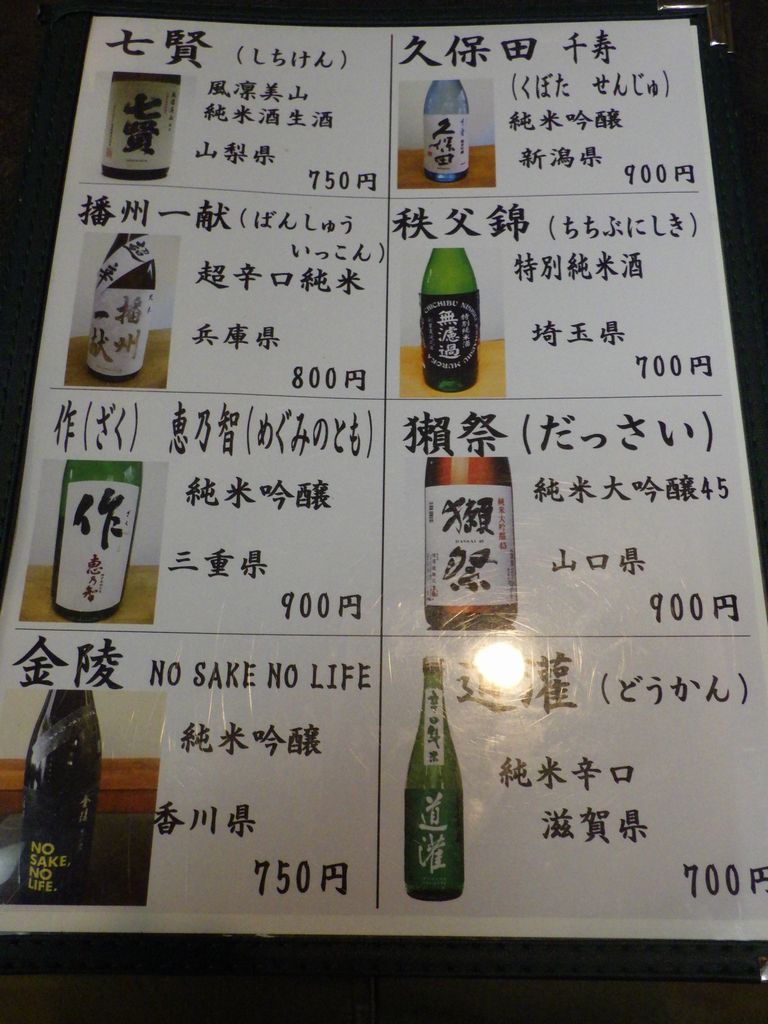 七賢 (しちけん)
風凛美山
純米酒生酒
山梨県
750円
七賢
久保田 千寿
(くぼた せんじゅ)
純米吟醸
新潟県
900円
久保田
播州一献(ばんしゅう
いっこん)
超辛口純米
兵庫県
800円
超辛
播州
一献
秩父錦 (ちちぶにしき)
特別純米酒
埼玉県
700円
CHICHIBU
特別純米酒
無濾過
MUROKA
作(ざく) 恵乃智(めぐみのとも)
純米吟醸
三重県
900円
作
恵乃智
獺祭(だっさい)
純米大吟醸45
山口県
900円
純米大吟醸45
獺祭
金陵 NO SAKE NO LIFE
純米吟醸
香川県
750円
金陵
NO
SAKE,
NO
LIFE.
道灌(どうかん)
純米辛口
滋賀県
700円
辛口純米
道灌